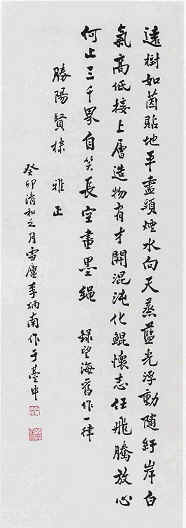 遠樹如茵貼地平盡頭煙水向天蒸藍光浮動隨紆岸白
氣高低接上層造物有才開混沌化鯤懷志任飛騰放心
何止三千界自笑長空畫墨繩 録望海舊作一律
勝陽賢棣 雅正
癸卯清和之月雪廬李炳南作于臺中